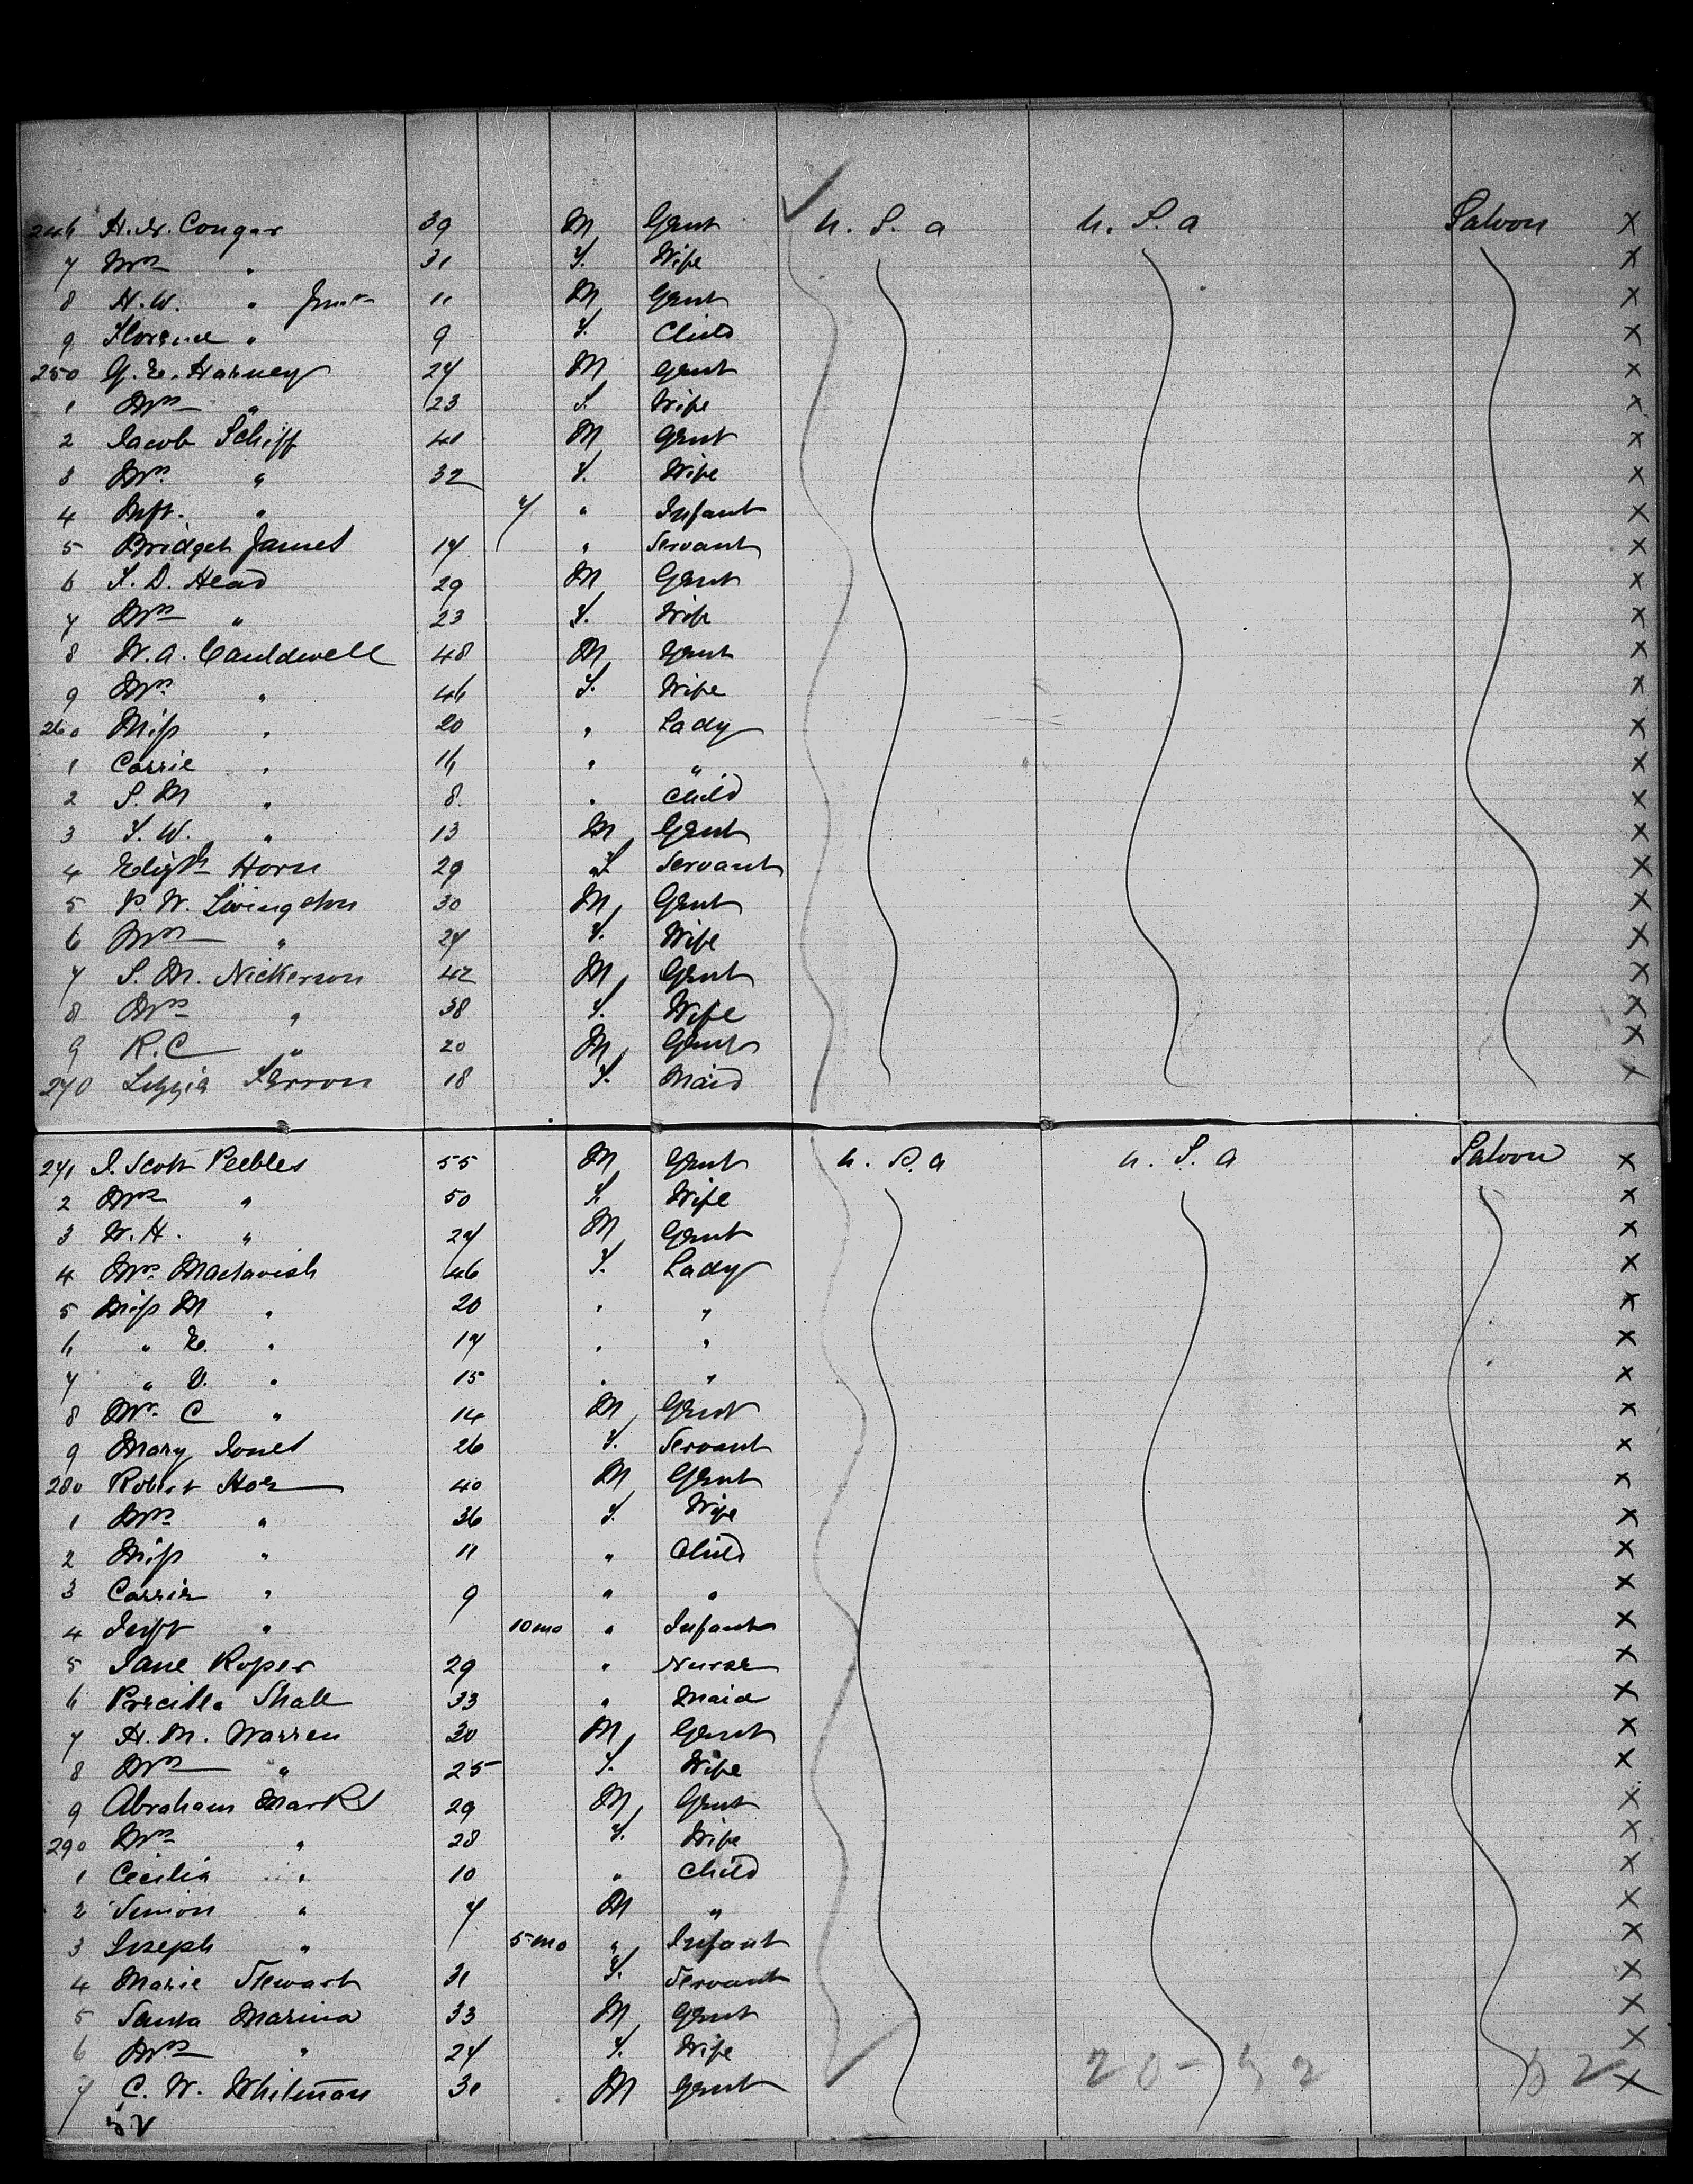 246 H. W. Congar 39 M Gent U. S. A U. S. A Saloon X
7 Mrs " 31 F. Wife X
8 H. W. " Junr 11 M Gent X
9 Florence " 9 F. Child X
250 G. E. Harney 27 M Gent X
1 Mrs " 23 F. Wife X
2 Jacob Schiff 41 M Gent X
3 Mrs " 32 F. Wife X
4 Inft. " 7 " Infant X
5 Bridget James 17 " Servant X
6 F. D. Head 29 M Gent X
7 Mrs " 23 F. Wife X
8 W. A. Cauldwell 48 M Gent X
9 Mrs " 46 F. Wife X
260 Miss " 20 " Lady X
1 Carrie " 16 " " X
2 S. M " 8 " Child X
3 F. W. " 13 M Gent X
4 Elizth Horn 29 F Servant X
5 P. W. Livingston 30 M Gent X
6 Mrs " 27 F. Wife X
7 S. M. Nickerson 42 M Gent X
8 Mrs " 38 F. Wife X
9 R. C " 20 M Gent X
270 Lizzie 18 F. Maid X
271 J. Scott Peebles 55 M Gent U. S. A U. S. A Saloon X
2 Mrs " 50 F. Wife X
3 W. H. " 27 M Gent X
4 Mrs Mactavish 46 F. Lady X
5 Miss M " 20 " " X
6 " E. " 17 " " X
7 " V. " 15 " " X
8 Mr. C " 14 M Gent X
9 Mary Jones 26 F. Servant X
280 Robert Hoe 40 M Gent X
1 Mrs " 36 F. Wife X
2 Miss " 11 " Child X
3 Carrie " 9 " " X
4 Inft " 10 mo " Infant X
5 Jane Roper 29 " Nurse X
6 Prcilla Shall 33 " Maid X
7 H. M. Warren 30 M Gent X
8 Mrs " 25 F. Wife X
9 Abraham Marks 29 M Gent X
290 Mrs " 28 F. Wife X
1 Cecilia " 10 " Child X
2 Simon " 7 M " X
3 Joseph " 5 mo " Infant X
4 Marie Stewart 31 F. Servant X
5 Santa Marina 33 M Gent X
6 Mrs " 27 F. Wife X
7 C. W. Whitman 31 M Gent X
52